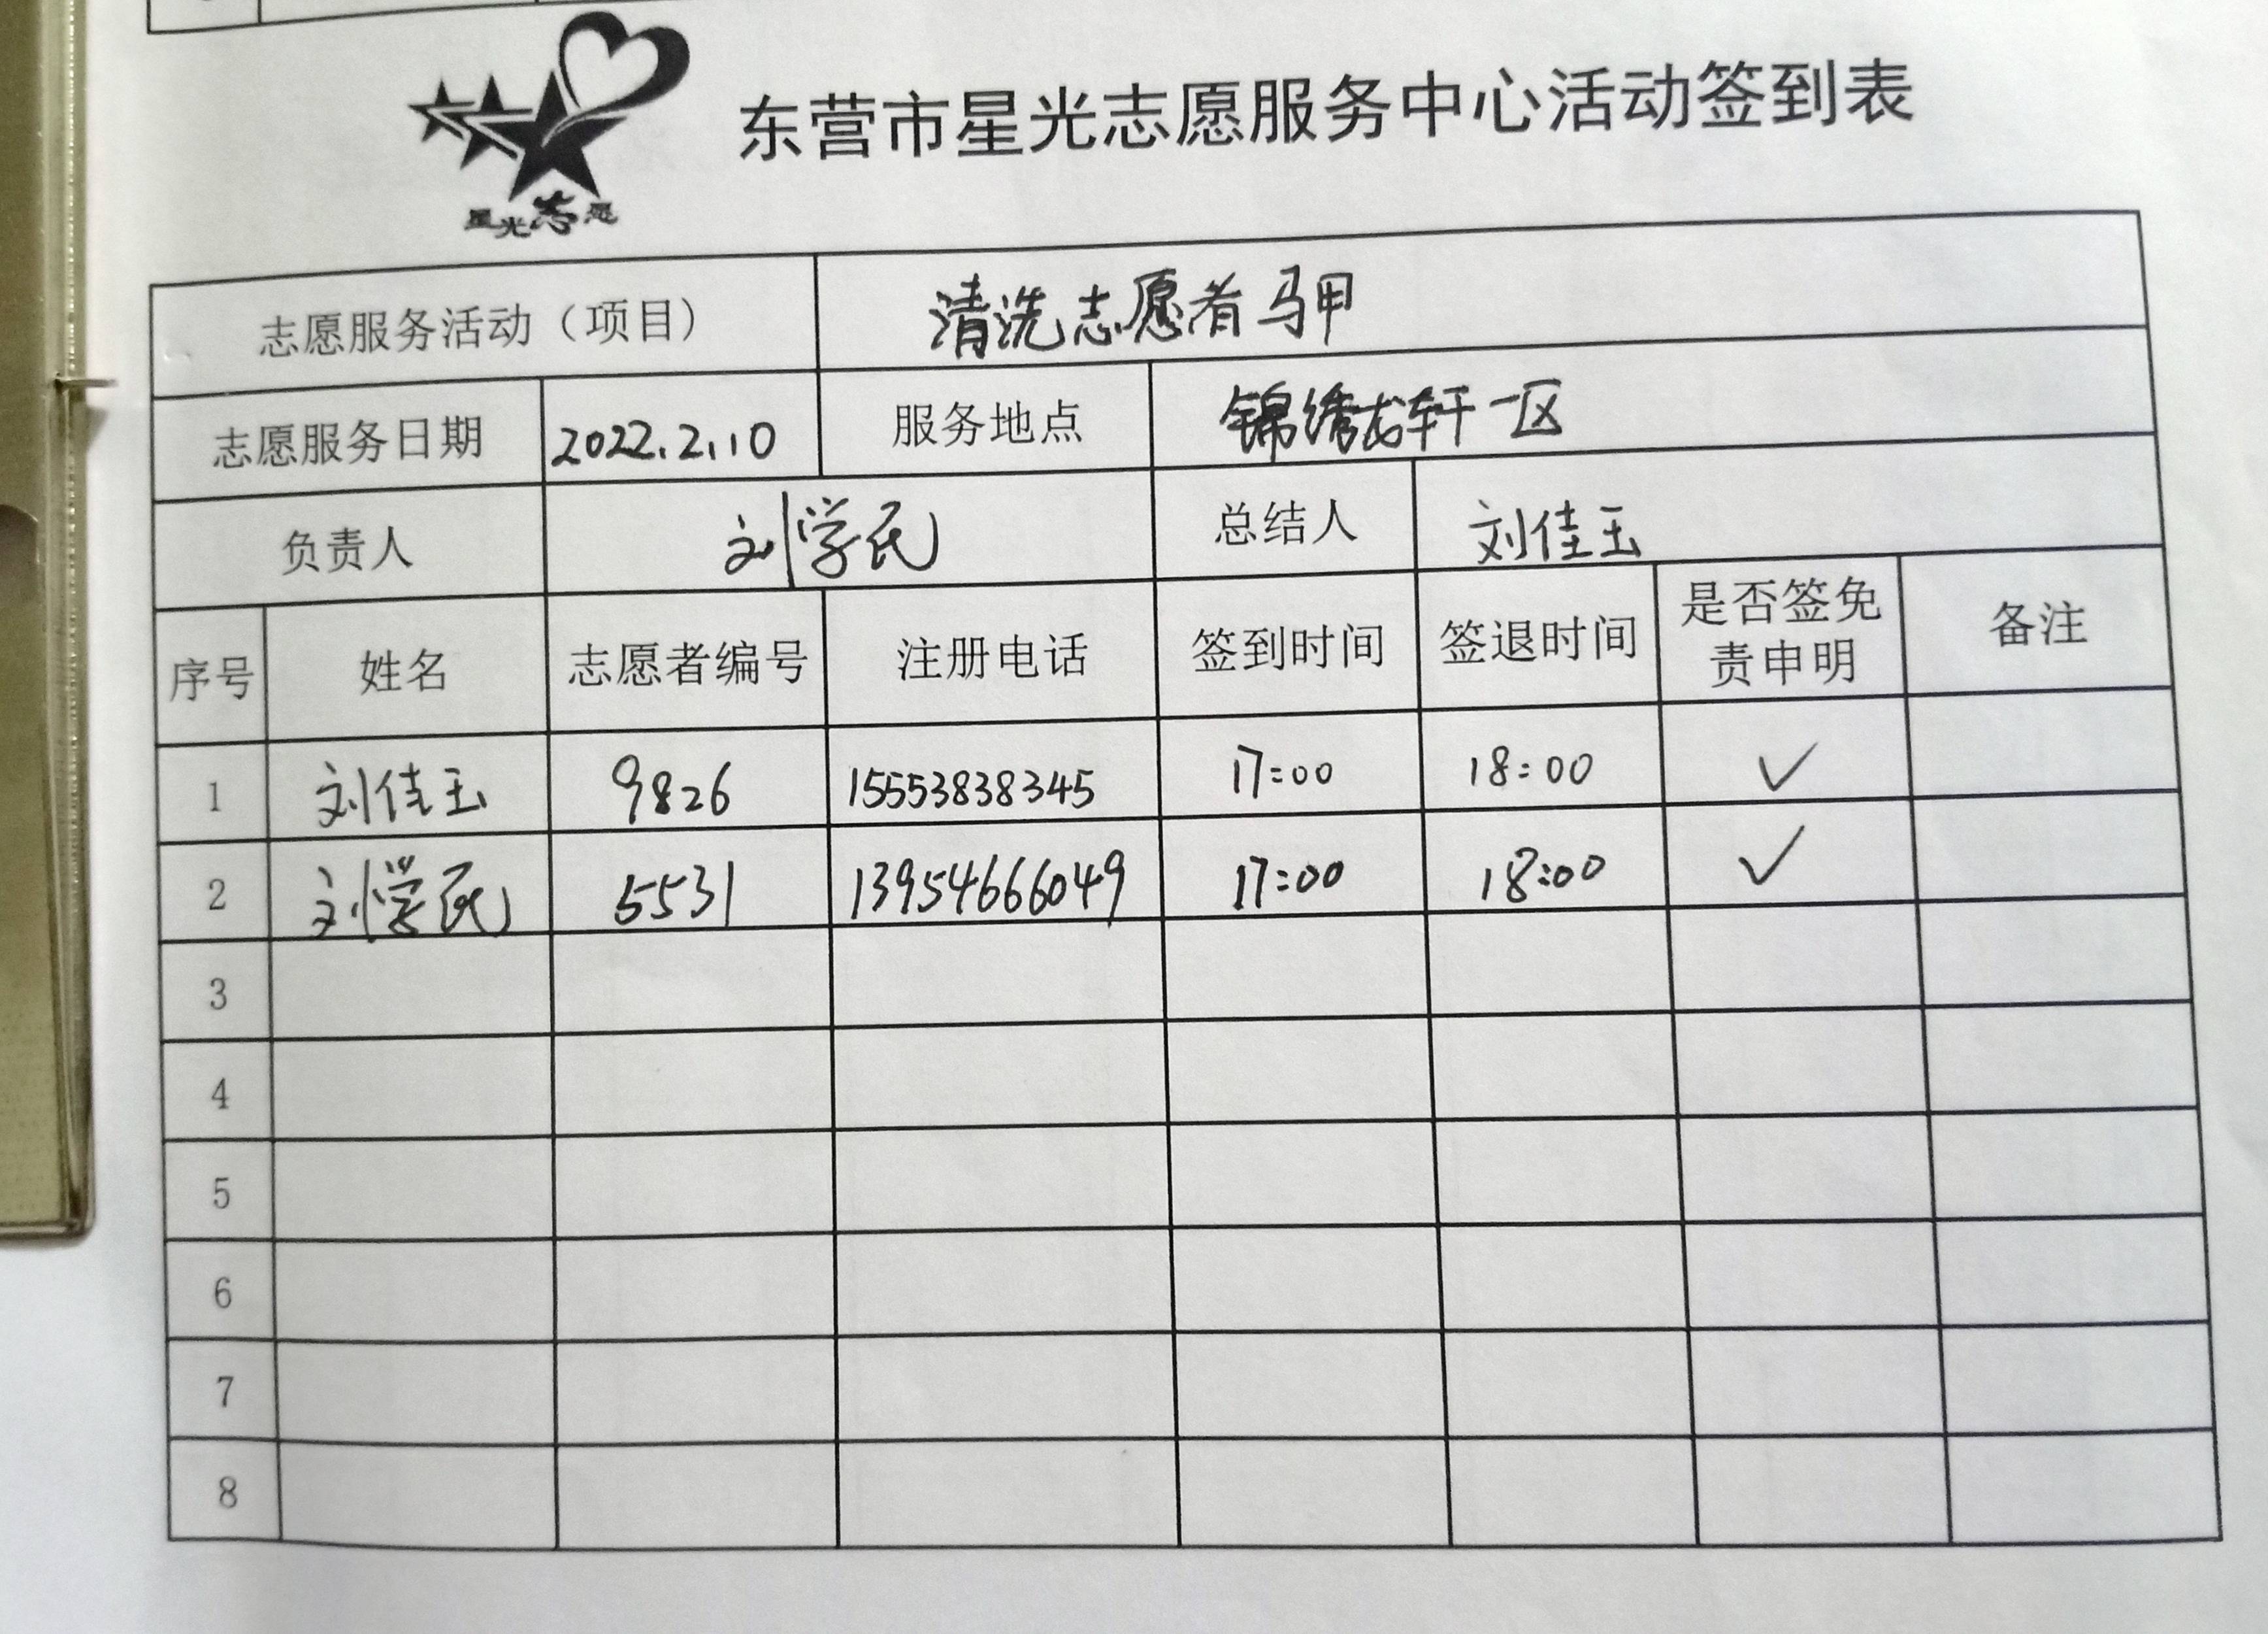 星光志愿
东营市星光志愿服务中心活动签到表
志愿服务活动（项目） 清洗志愿者马甲
志愿服务日期 2022.2.10 服务地点 锦绣龙轩一区
负责人 刘学民 总结人 刘佳玉
序号 姓名 志愿者编号 注册电话 签到时间 签退时间 是否签免责申明 备注
1 刘佳玉 9826 15553838345 17:00 18:00 ✓
2 刘学民 5531 13954666049 17:00 18:00 ✓
3
4
5
6
7
8